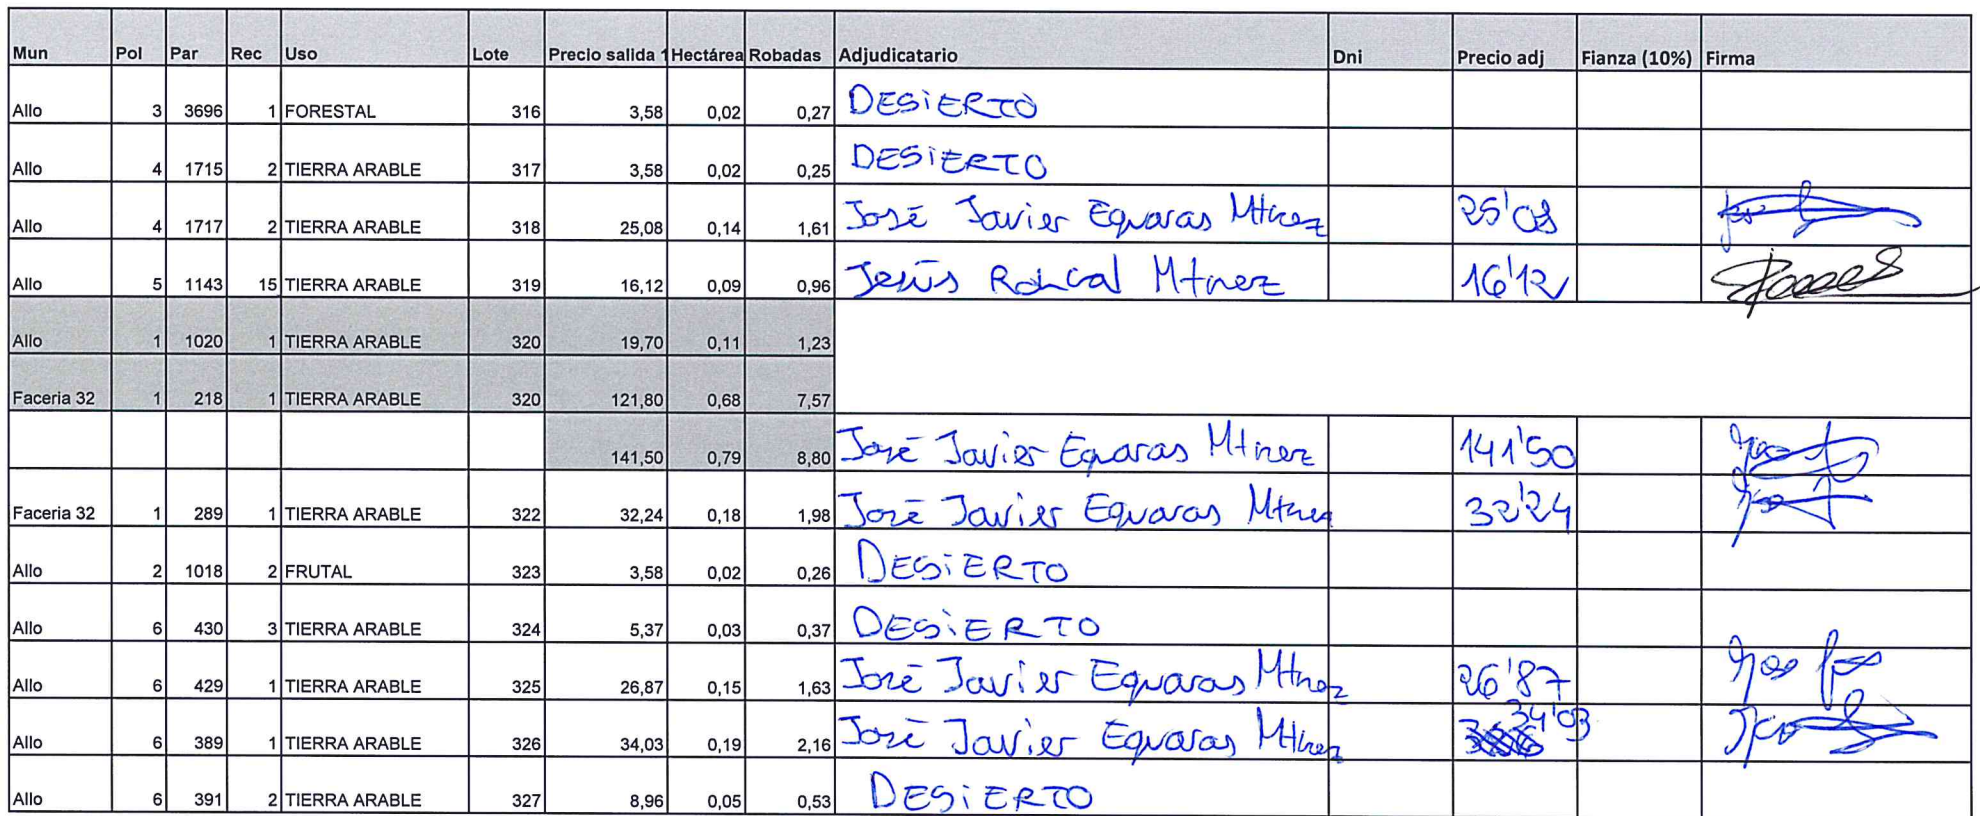 Mun Pol Par Rec Uso Lote Precio salida 1 Hectárea Robadas Adjudicatario Dni Precio adj Fianza (10%) Firma
Allo 3 3696 1 FORESTAL 316 3,58 0,02 0,27 DESiERTO
Allo 4 1715 2 TIERRA ARABLE 317 3,58 0,02 0,25 DESiERTO
Allo 4 1717 2 TIERRA ARABLE 318 25,08 0,14 1,61 José Javier Eguaras Mtnez 25'08
Allo 5 1143 15 TIERRA ARABLE 319 16,12 0,09 0,96 Jesús Roncal Mtnez 16'12
Allo 1 1020 1 TIERRA ARABLE 320 19,70 0,11 1,23
Faceria 32 1 218 1 TIERRA ARABLE 320 121,80 0,68 7,57
141,50 0,79 8,80 José Javier Eguaras Mtnez 141'50
Faceria 32 1 289 1 TIERRA ARABLE 322 32,24 0,18 1,98 José Javier Eguaras Mtnez 32'24
Allo 2 1018 2 FRUTAL 323 3,58 0,02 0,26 DESiERTO
Allo 6 430 3 TIERRA ARABLE 324 5,37 0,03 0,37 DESiERTO
Allo 6 429 1 TIERRA ARABLE 325 26,87 0,15 1,63 José Javier Eguaras Mtnez 26'87
Allo 6 389 1 TIERRA ARABLE 326 34,03 0,19 2,16 José Javier Eguaras Mtnez 34'03
Allo 6 391 2 TIERRA ARABLE 327 8,96 0,05 0,53 DESiERTO